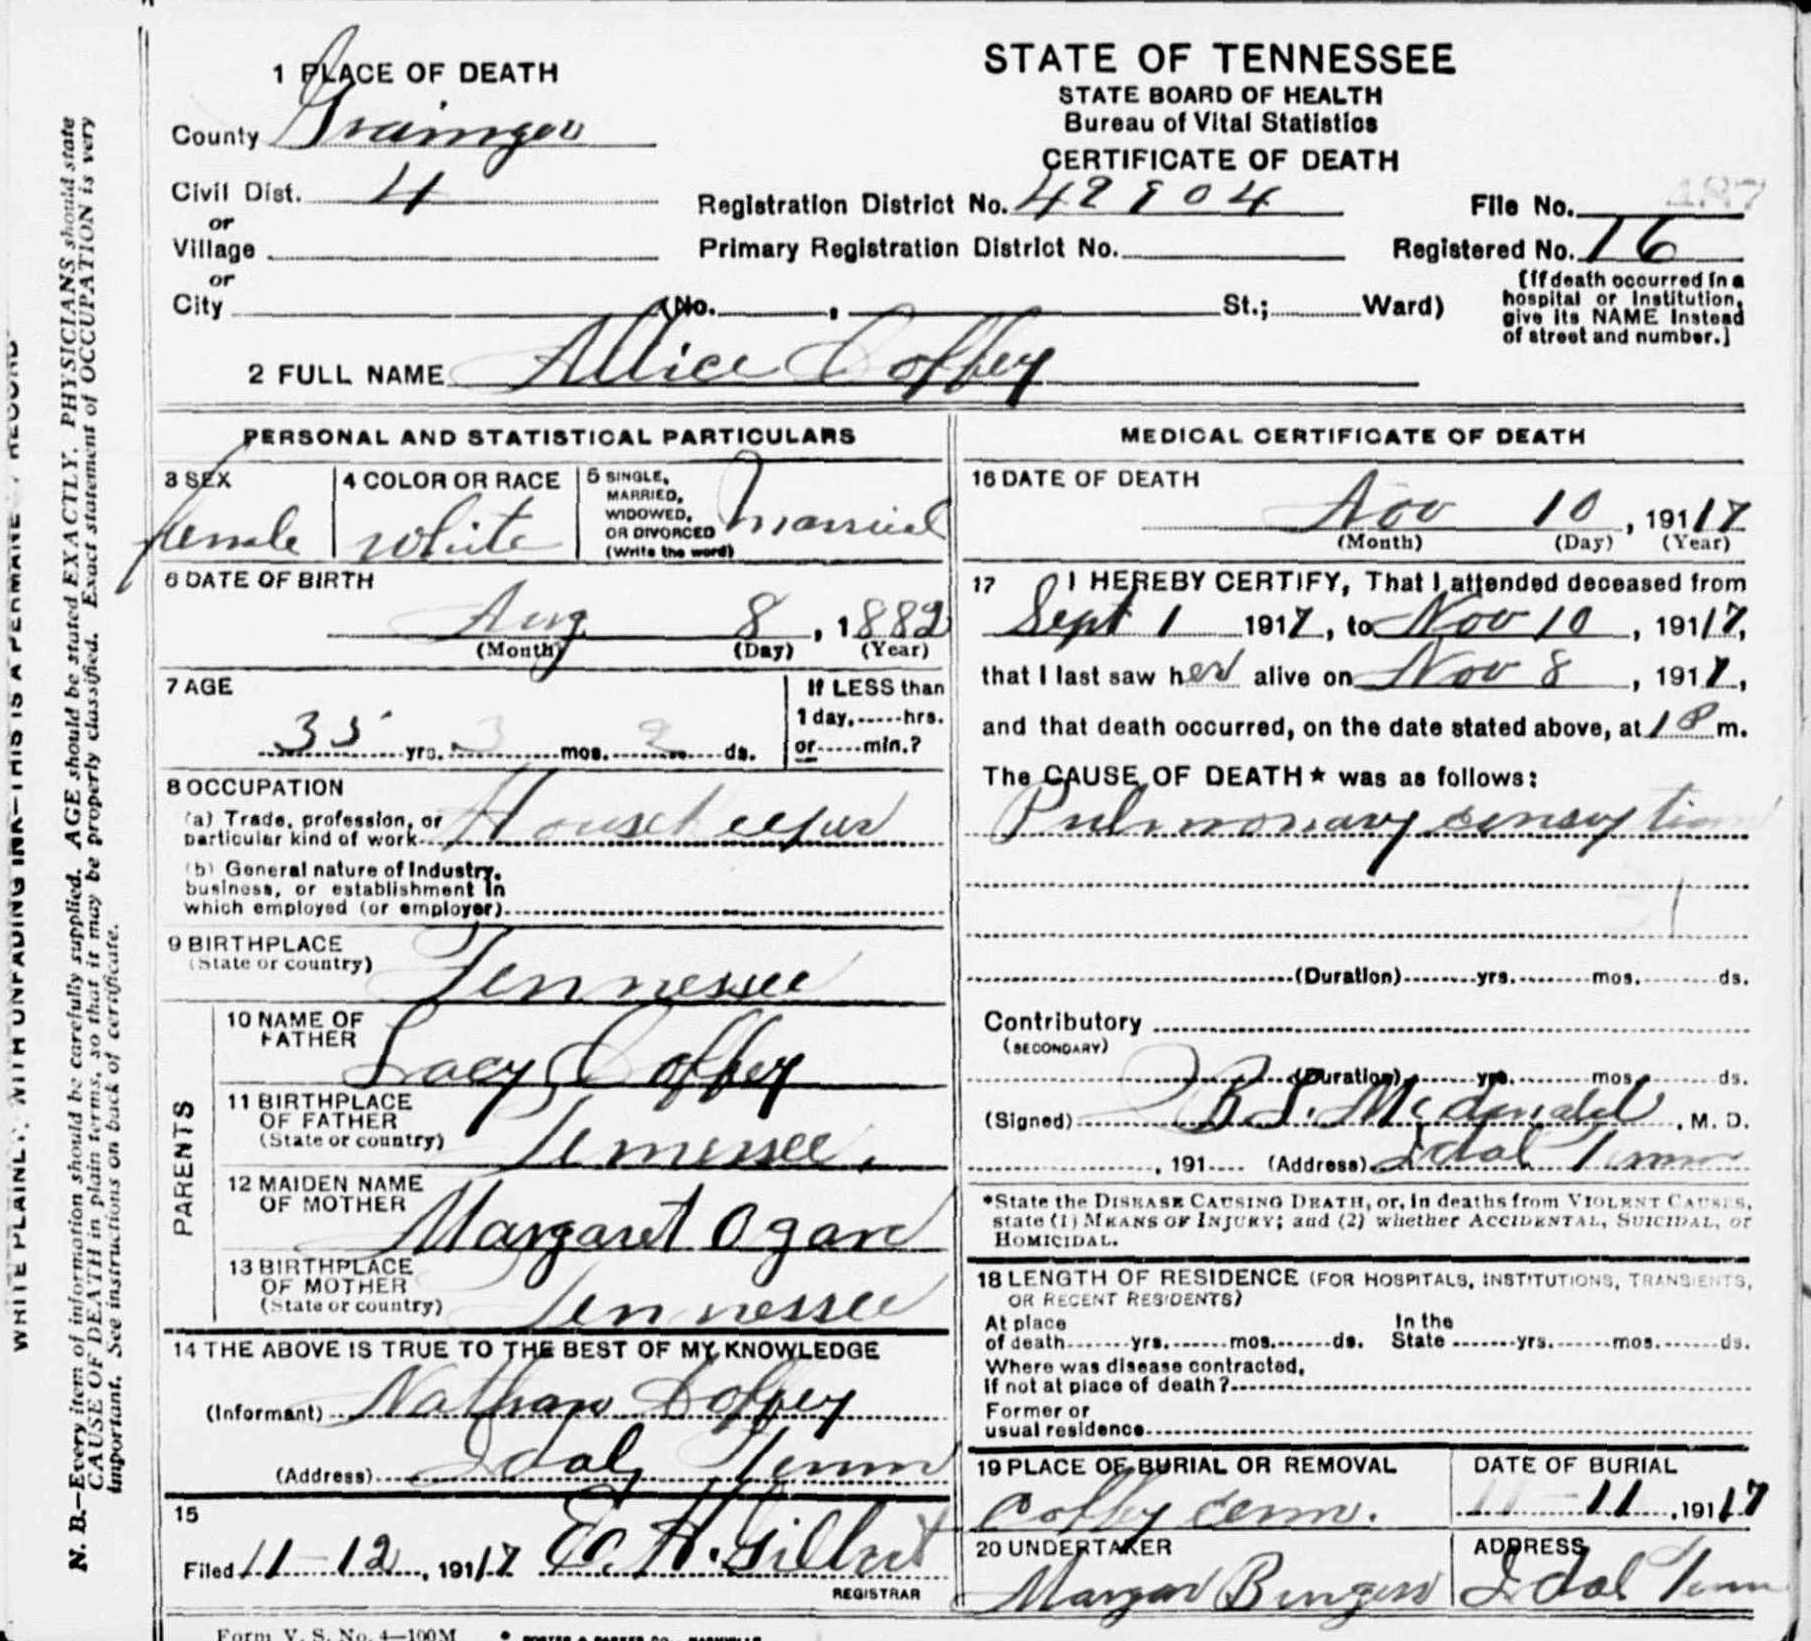 1 PLACE OF DEATH
County Grainger
Civil Dist. 4
or
Village
or
City (No. , St.; Ward)
STATE OF TENNESSEE
STATE BOARD OF HEALTH
Bureau of Vital Statistics
CERTIFICATE OF DEATH
Registration District No. 42904
Primary Registration District No.
File No. 487
Registered No. 16
[If death occurred in a
hospital or institution,
give its NAME instead
of street and number.]
2 FULL NAME Allice Coffey
PERSONAL AND STATISTICAL PARTICULARS
3 SEX
female
4 COLOR OR RACE
White
5 SINGLE,
MARRIED,
WIDOWED,
OR DIVORCED
(Write the word)
married
6 DATE OF BIRTH
Aug 8, 1882
(Month) (Day) (Year)
7 AGE
35 yrs. 3 mos. 2 ds.
If LESS than
1 day, hrs.
or min.?
8 OCCUPATION
(a) Trade, profession, or
particular kind of work Housekeeper
(b) General nature of Industry,
business, or establishment in
which employed (or employer)
9 BIRTHPLACE
(State or country) Tennessee
PARENTS
10 NAME OF
FATHER Lacy Coffey
11 BIRTHPLACE
OF FATHER
(State or country) Tennessee.
12 MAIDEN NAME
OF MOTHER Margaret Ogan
13 BIRTHPLACE
OF MOTHER
(State or country) Tennessee
14 THE ABOVE IS TRUE TO THE BEST OF MY KNOWLEDGE
(Informant) Nathan Coffey
(Address) Idol, Tenn
15
Filed 11-12, 1917 E. H. Gilbert
REGISTRAR
MEDICAL CERTIFICATE OF DEATH
16 DATE OF DEATH
Nov 10, 19117
(Month) (Day) (Year)
17 I HEREBY CERTIFY, That I attended deceased from
Sept 1 1917, to Nov 10, 19117,
that I last saw her alive on Nov 8, 1917,
and that death occurred, on the date stated above, at 1 P m.
The CAUSE OF DEATH* was as follows:
Pulmonary
(Duration) yrs. mos. ds.
Contributory
(SECONDARY)
(Duration) yrs. mos. ds.
(Signed) B. L. McDonald, M. D.
, 191 (Address) Idol Tenn
*State the DISEASE CAUSING DEATH, or, in deaths from VIOLENT CAUSES,
state (1) MEANS OF INJURY; and (2) whether ACCIDENTAL, SUICIDAL, or
HOMICIDAL.
18 LENGTH OF RESIDENCE (FOR HOSPITALS, INSTITUTIONS, TRANSIENTS,
OR RECENT RESIDENTS)
At place In the
of death yrs. mos. ds. State yrs. mos. ds.
Where was disease contracted,
if not at place of death?
Former or
usual residence
19 PLACE OF BURIAL OR REMOVAL
Coffey Cem.
DATE OF BURIAL
11-11, 19117
20 UNDERTAKER
ADDRESS
Idol Tenn
WRITE PLAINLY WITH UNFADING INK—THIS IS A PERMANENT RECORD
N. B.—Every item of information should be carefully supplied. AGE should be stated EXACTLY. PHYSICIANS should state
CAUSE OF DEATH in plain terms, so that it may be properly classified. Exact statement of OCCUPATION is very
important. See instructions on back of certificate.
Form V. S. No. 4—100M